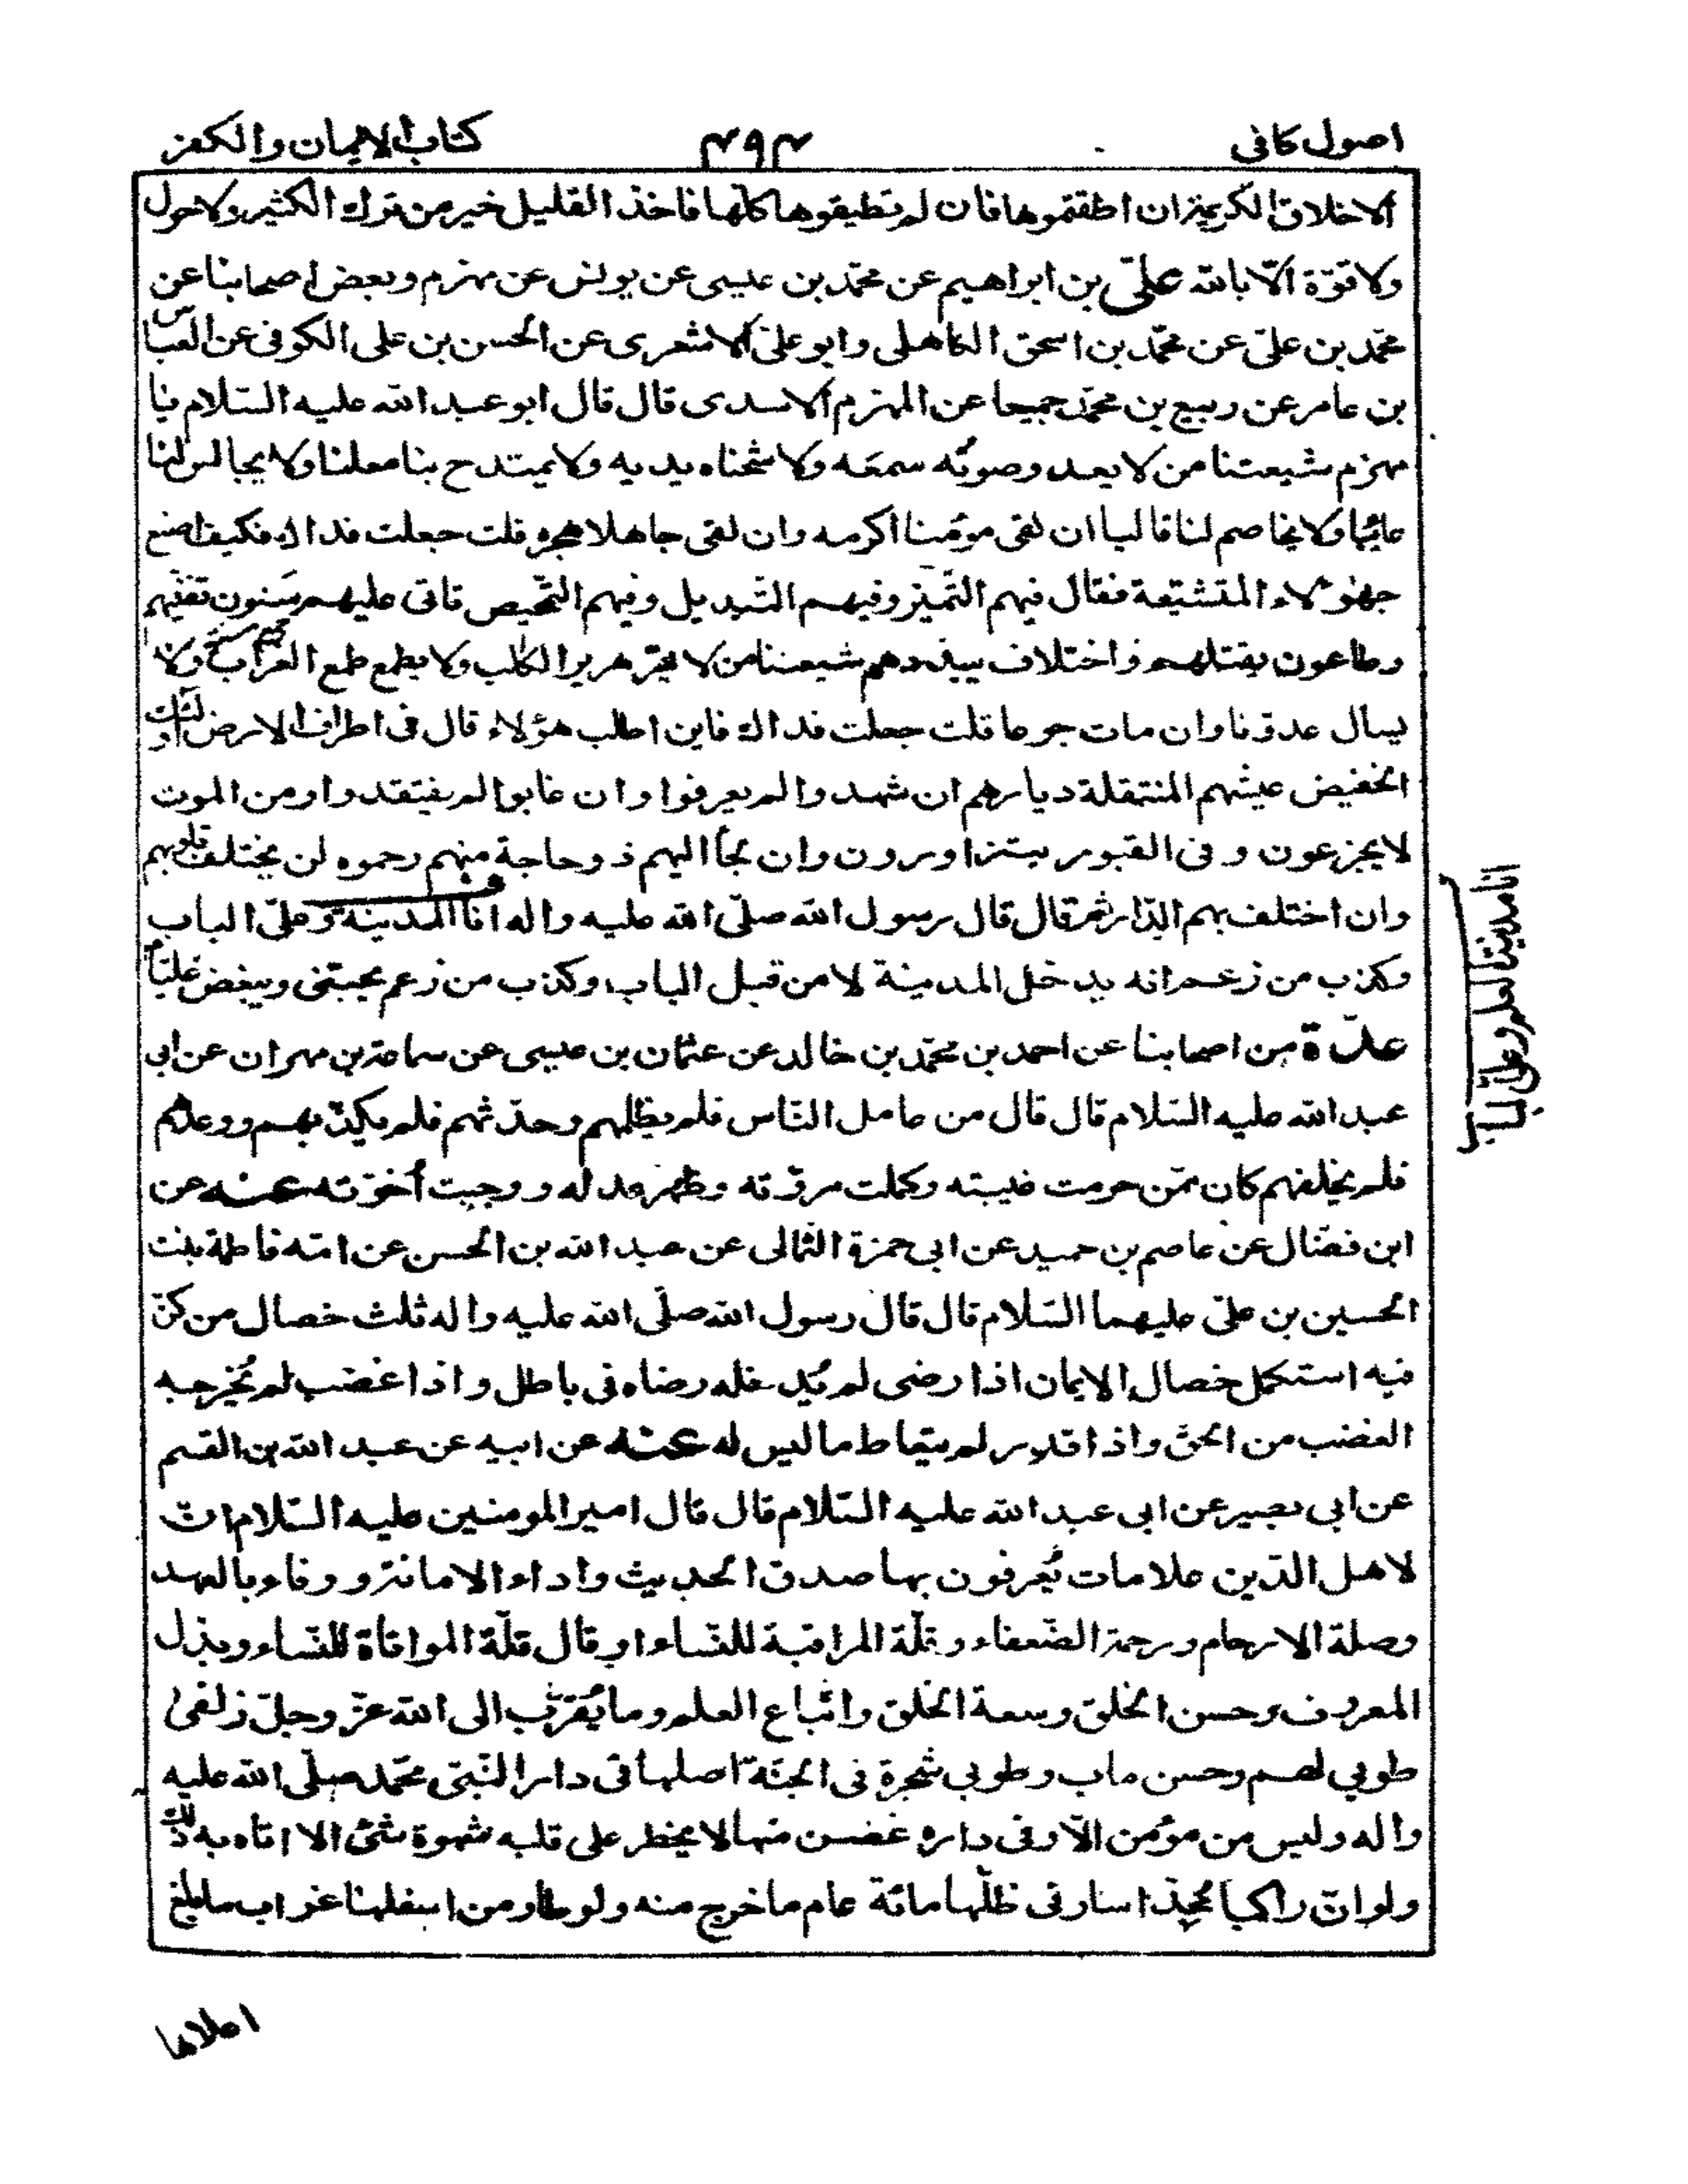 اصول کافی
۴۹۴
کتاب الایمان والکفر
الاخلاق الکریمة ان اطقتموها فان لم تطیقوها کلها فاخذ القلیل خیر من ترك الکثیر ولا حول
ولا قوّة الّا بالله علیّ بن ابراهیم عن محمّد بن عیسی عن یونس عن مهزم وبعض اصحابنا عن
محمّد بن علیّ عن محمّد بن اسحق الکاهلی وابو علی الاشعری عن الحسن بن علی الکوفی عن العباس
بن عامر عن ربیع بن محمّد جمیعا عن المهزم الاسدی قال قال ابو عبد الله علیه السّلام یا
مهزم شیعتنا من لا یعدو صوتُه سمعَه ولا شحناه یدیه ولا یمتدح بنا معلنا ولا یجالس لنا
عائبا ولا یخاصم لنا قالیا ان لقی مؤمنا اکرمه وان لقی جاهلا هجره قلت جعلت فداك فکیف اصنع
بهؤلاء المتشیّعة فقال فیهم التّمییز وفیهم التّبدیل وفیهم التّمحیص تاتی علیهم سنون تفنیهم
وطاعون یقتلهم واختلاف یبددهم شیعتنا من لا یهرّ هریر الکلب ولا یطمع طمع الغراب ولا
یسال عدوّنا وان مات جوعا قلت جعلت فداك فاین اطلب هؤلاء قال فی اطراف الارض اولئك
الخفیض عیشهم المنتقلة دیارهم ان شهدوا لم یعرفوا وان غابوا لم یفتقدوا ومن الموت
لا یجزعون وفی القبور یتزاورون وان لجأ الیهم ذو حاجة منهم رحموه لن یختلف قلوبهم
وان اختلف بهم الدّار ثم قال قال رسول الله صلّی الله علیه واله انا المدینة وعلیّ الباب
وکذب من زعم انه یدخل المدینة لا من قبل الباب وکذب من زعم یحبّنی ویبغض علیّاً
عدّة من اصحابنا عن احمد بن محمّد بن خالد عن عثمان بن عیسی عن سماعة بن مهران عن ابی
عبد الله علیه السّلام قال قال من عامل النّاس فلم یظلمهم وحدّثهم فلم یکذبهم ووعدهم
فلم یخلفهم کان ممّن حرمت غیبته وکملت مروّته وظهر عدله ووجبت أخوّته عنه عن
ابن فضّال عن عاصم بن حمید عن ابی حمزة الثّمالی عن عبد الله بن الحسن عن امّه فاطمة بنت
الحسین بن علیّ علیهما السّلام قال قال رسول الله صلّی الله علیه واله ثلث خصال من کنّ
فیه استکمل خصال الایمان اذا رضی لم یُدخله رضاه فی باطل واذا غضب لم یُخرجه
الغضب من الحقّ واذا قدر لم یتعاط ما لیس له عنه عن ابیه عن عبد الله بن القسم
عن ابی بصیر عن ابی عبد الله علیه السّلام قال قال امیر المومنین علیه السّلام انّ
لاهل الدّین علامات یُعرفون بها صدق الحدیث واداء الامانة ووفاء بالعهد
وصلة الارحام ورحمة الضّعفاء وقلّة المراقبة للنّساء او قال قلّة المواتاة للنّساء وبذل
المعروف وحسن الخلق وسعة الخلق واتّباع العلم وما یُقرّب الی الله عزّ وجلّ زلفی
طوبی لهم وحسن ماب وطوبی شجرة فی الجنّة اصلها فی دار النّبیّ محمّد صلّی الله علیه
واله ولیس من مؤمن الّا وفی داره غصن منها لا یخطر علی قلبه شهوة شئ الا اتاه به ذلك
ولو انّ راکبا مُجِدّا سار فی ظلّها مائة عام ما خرج منه ولو طار من اسفلها غراب ما بلغ
اعلاها
انا مدینة العلم وعلیّ بابها